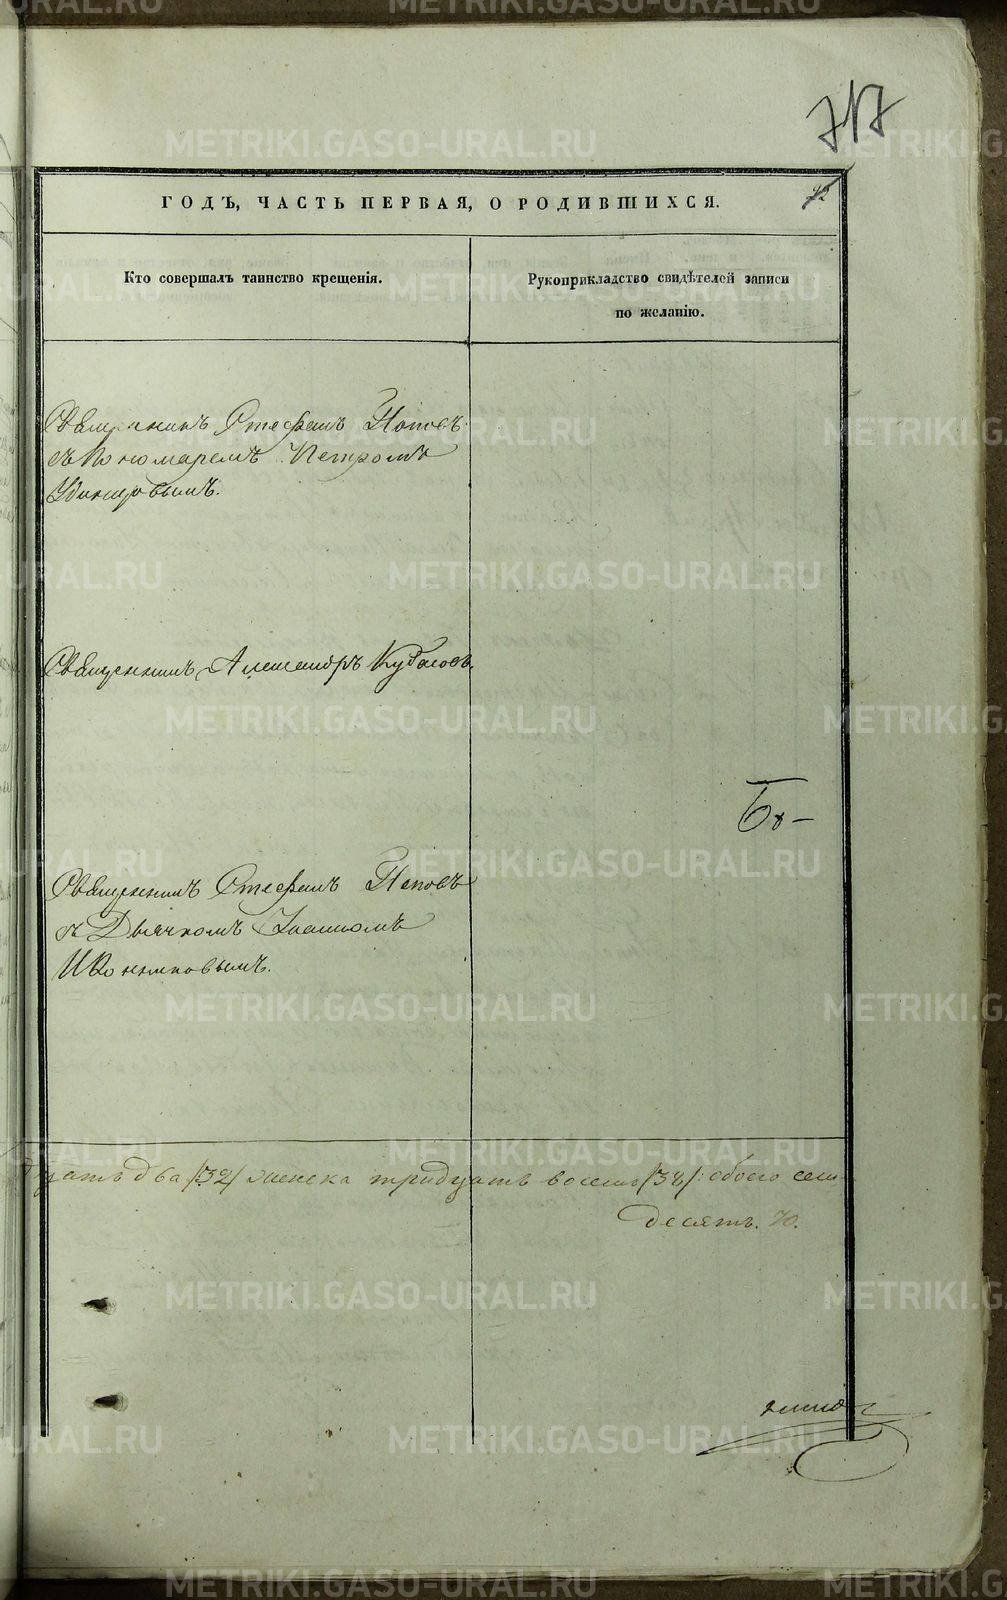 717
42
ГОДЪ, ЧАСТЬ ПЕРВАЯ, О РОДИВШИХСЯ.
Кто совершалъ таинство крещенія.
Рукоприкладство свидѣтелей записи
по желанію.
Священникъ Стефанъ Поповъ
съ Пономаремъ Петромъ
Удинцовымъ.
Священникъ Александръ
Священникъ Стефанъ Поповъ
съ Дьячкомъ Іоанномъ
Иконниковымъ.
дцать два /32/ женска тридцать восемь /38/: обоего семь
десятъ. 70.
METRIKI.GASO-URAL.RU